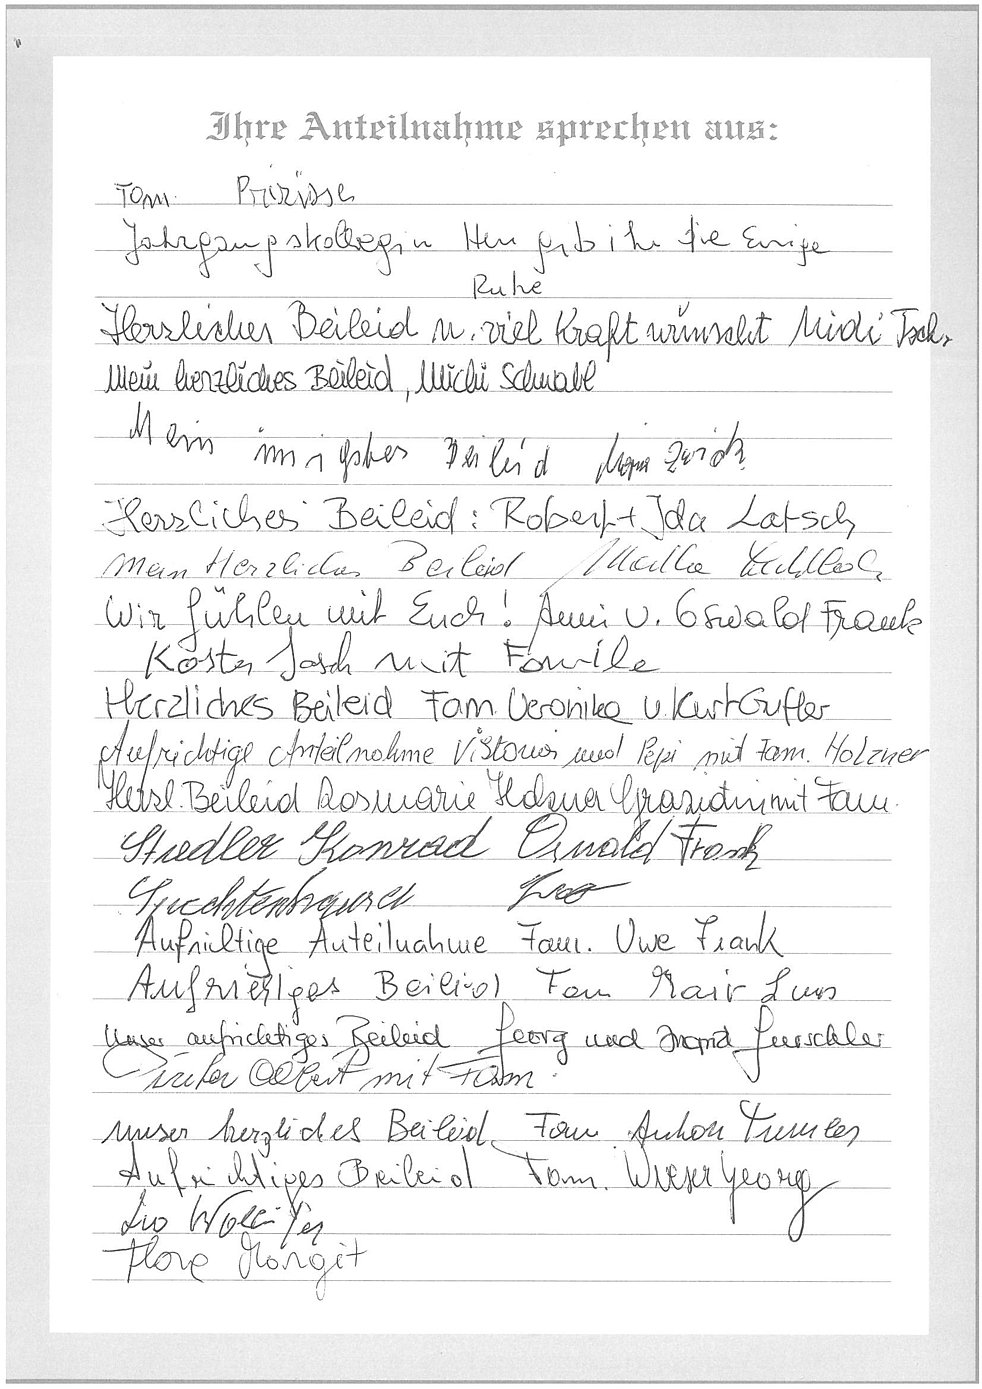 Ihre Anteilnahme sprechen aus:
Tom
Jahrgangskollegin Herr gib ihr die Ewige
Ruhe
Herzliches Beileid u. viel Kraft wünscht Midi
Mein herzliches Beileid, Michi Schwabl
Mein innigstes Beileid
Herzliches Beileid: Robert + Ida Latsch
Mein Herzliches Beileid
Wir fühlen mit Euch! Anni u. Oswald Frank
mit Familie
Herzliches Beileid Fam. Veronika u. Kurt Gufler
Aufrichtige Anteilnahme und Pepi mit Fam. Holzner
Herzl. Beileid Rosmarie mit Fam.
Stedler Konrad Oswald Frank
Aufrichtige Anteilnahme Fam. Uwe Frank
Beileid Fam Mair Luis
Unser aufrichtiges Beileid Georg und Ingrid
Albert mit Fam.
unser herzliches Beileid, Fam. Anton
Aufrichtiges Beileid Fam. Wieser Georg
Margit